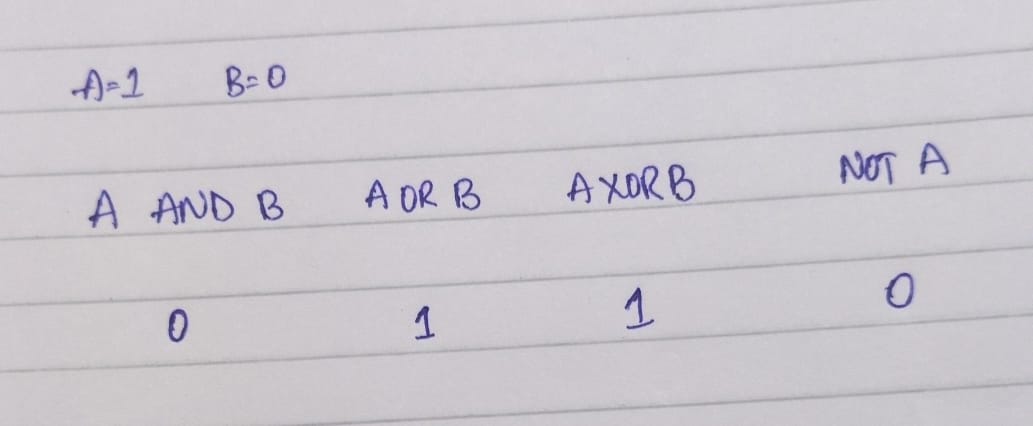 A=1 B=0
A AND B A OR B A XOR B NOT A
0 1 1 0